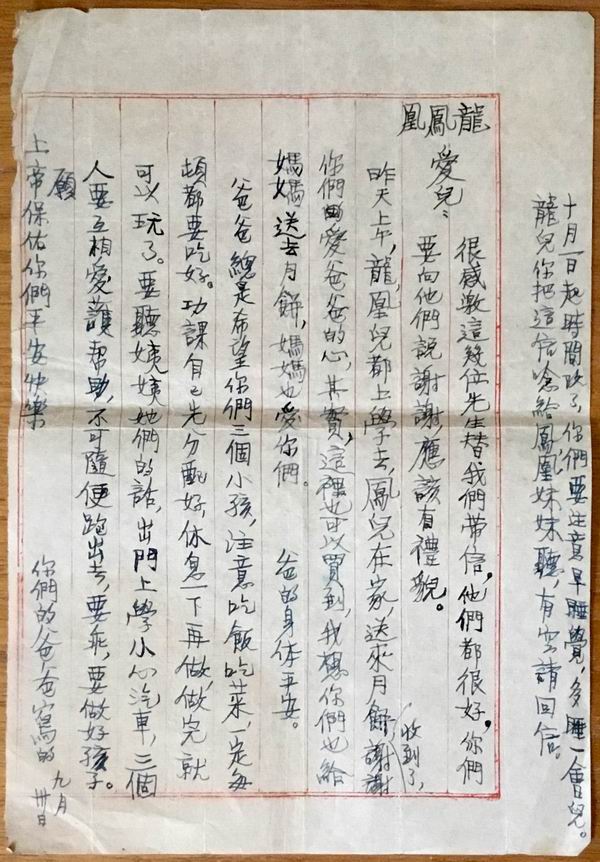 十月一日起時間改了,你們要注意早睡覺,多睡一會兒。
龍兒你把這信唸給鳳凰妹妹聽,有空請回信。
龍鳳凰
愛兒:
很感激這幾位先生替我們带信,他們都很好,你們
要向他們説謝謝應該有禮貌。
昨天上午,龍,凰兒都上學去,鳳兒在家,送來月餅,收到了,謝謝
你們的愛爸爸的心,其實,這裡也可以買到,我想你們也給
媽媽送去月餅,媽媽也愛你們。 爸的身体平安。
爸爸總是希望你們三個小孩,注意吃飯吃菜,一定每
頓都要吃好。功課自己先分配好休息一下再做,做完就
可以玩了。要聽姨姨她們的話,出門上學小心汽車,三個
人要互相愛護帮助,不可隨便跑出去,要乖,要做好孩子。
願
上帝保佑你們平安快樂
你們的爸爸寫的
九月
卅日